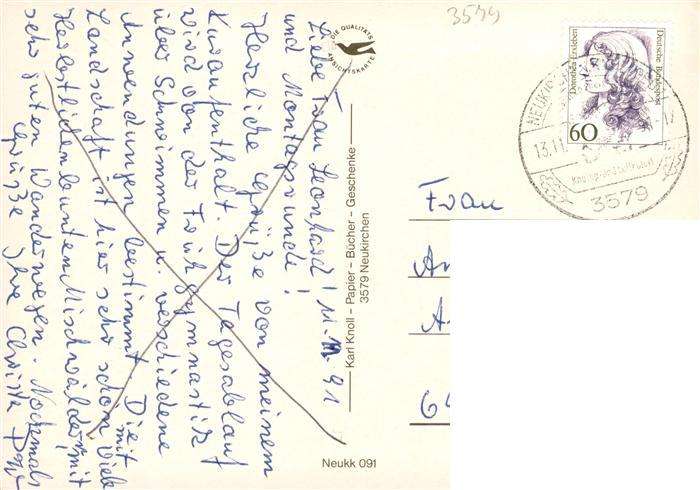 Liebe Frau Leonhard! 11.11.91
und Montagsrunde!
Herzliche Grüße von meinem
Kuraufenthalt. Der Tagesablauf
wird von der Frühgymnastik
über Schwimmen u. verschiedene
Anwendungen bestimmt. Die
Landschaft ist hier sehr schön mit viele
Herbstlichen bunten Mischwälder, mit
sehr guten Wanderwegen. Nochmals
Grüße Ihre Christa
DIE QUALITÄTS
ANSICHTSKARTE
Karl Knoll – Papier – Bücher – Geschenke
3579 Neukirchen
Neukk 091
3579
Deutsche Bundespost
60
NEUKIRC
13.11
3579
Frau